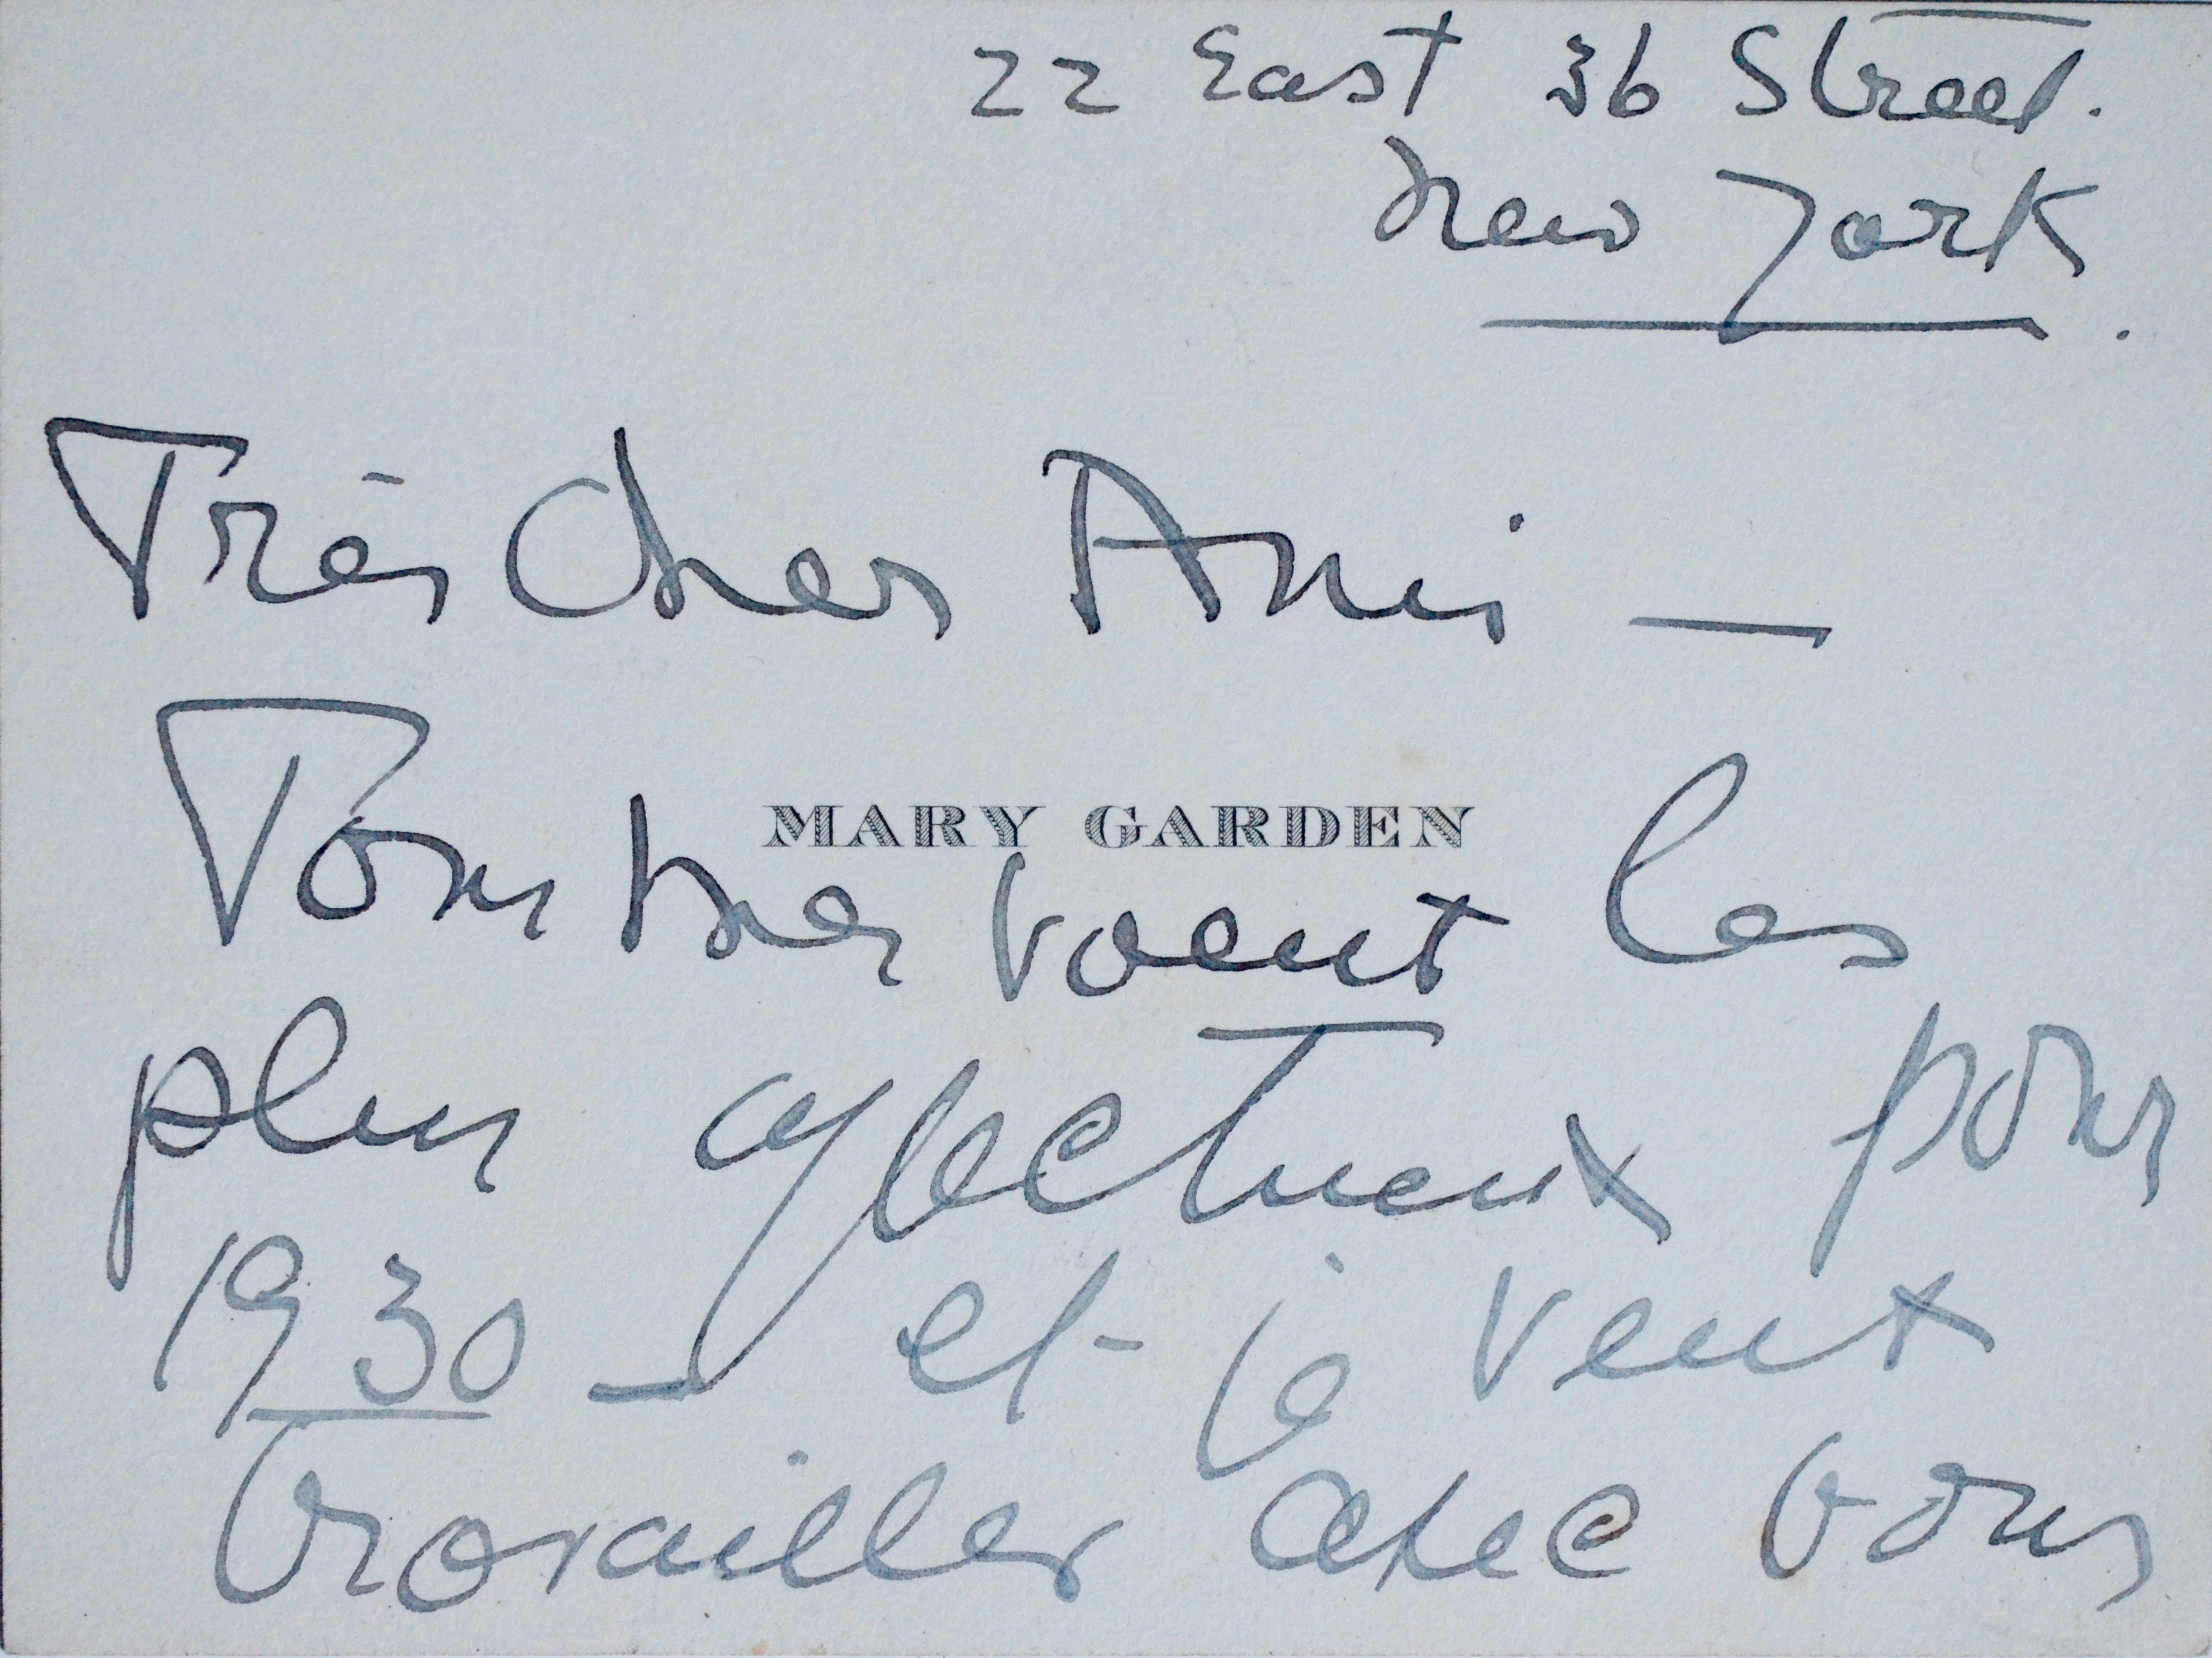 22 East 36 Street.
New York.
Très Cher Ami —
MARY GARDEN
Tous mes voeux les
plus affectueux pour
1930 — et je veux
travailler avec vous